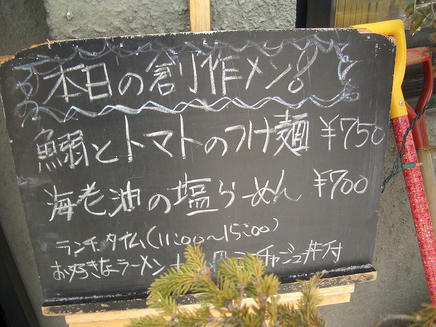 本日の創作メン
鰯とトマトのつけ麺 ¥750
海老油の塩らーめん ¥700
ランチタイム(11:00〜15:00)
お好きなラーメン チャーシュー丼付